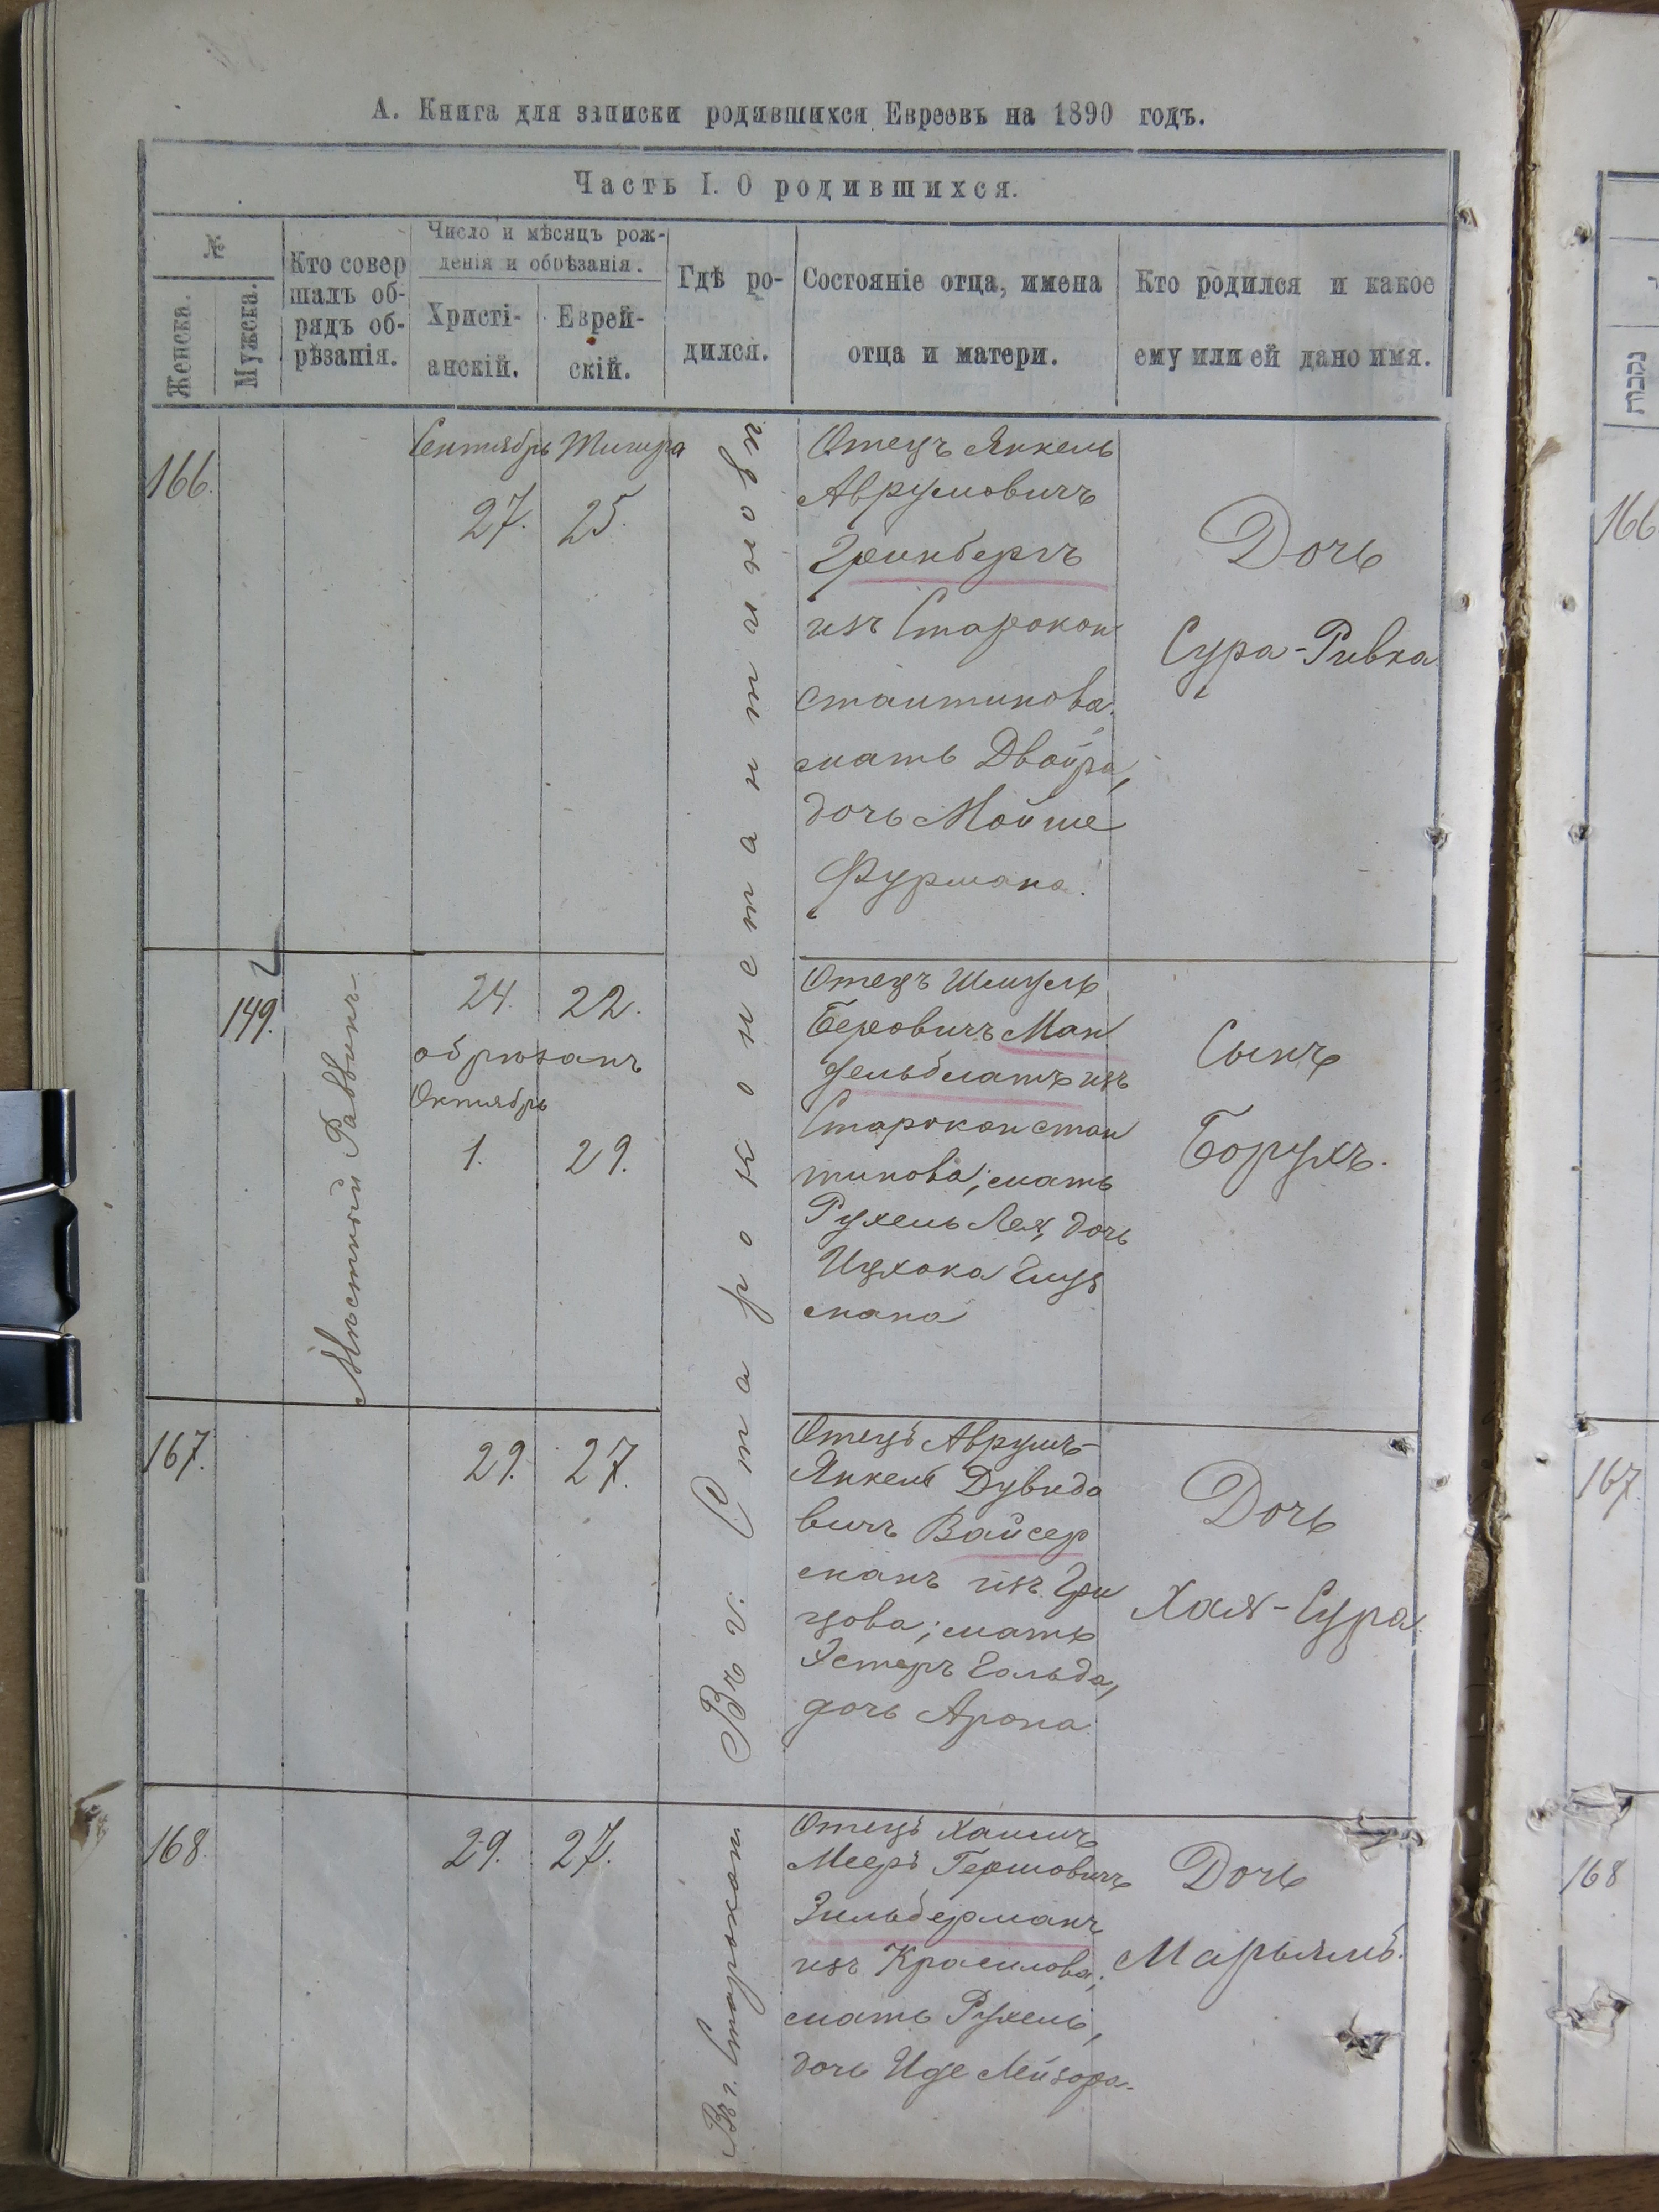 А. Книга для записки родившихся Евреевъ на 1890 годъ.
Часть I. О родившихся.
№
Женска.
Мужска.
Кто совер
шалъ об-
рядъ об-
рѣзанія.
Число и мѣсяцъ рож-
денія и обрѣзанія.
Христі-
анскій.
Еврей-
скій.
Гдѣ ро-
дился.
Состояніе отца, имена
отца и матери.
Кто родился и какое
ему или ей дано имя.
166.
Сентябрь Тишра
27. 25.
Въ г. Староконстантиновѣ
Отецъ Янкель
Аврумовичъ
Гринбергъ
изъ Старокон
стантинова.
мать Двойра,
дочь Мойше
Фурмана.
Дочь
Сура-Ривка
149.
Мѣстный Раввинъ
24. 22.
обрѣзанъ
Октябрь
1. 29.
Отецъ Шмуель
Беровичъ Ман
дельблатъ изъ
Староконстан
тинова; мать
Рухель Лея, дочь
Ицхока
мана
Сынъ
Борухъ.
167.
29. 27.
Отецъ Аврумъ-
Янкель Дувидо
вичъ Вайсер
манъ изъ Гри
цова; мать
Эстеръ Гольда,
дочь Арона
Дочь
Хая-Сура
168.
29. 27.
Въ г. Старокон
Отецъ Хаимъ
Мееръ Гершовичъ
Зильберманъ
изъ Красилова;
мать Рухель,
дочь Иде Лейзора.
Дочь
Марьямъ.
נקבות
166
167.
168